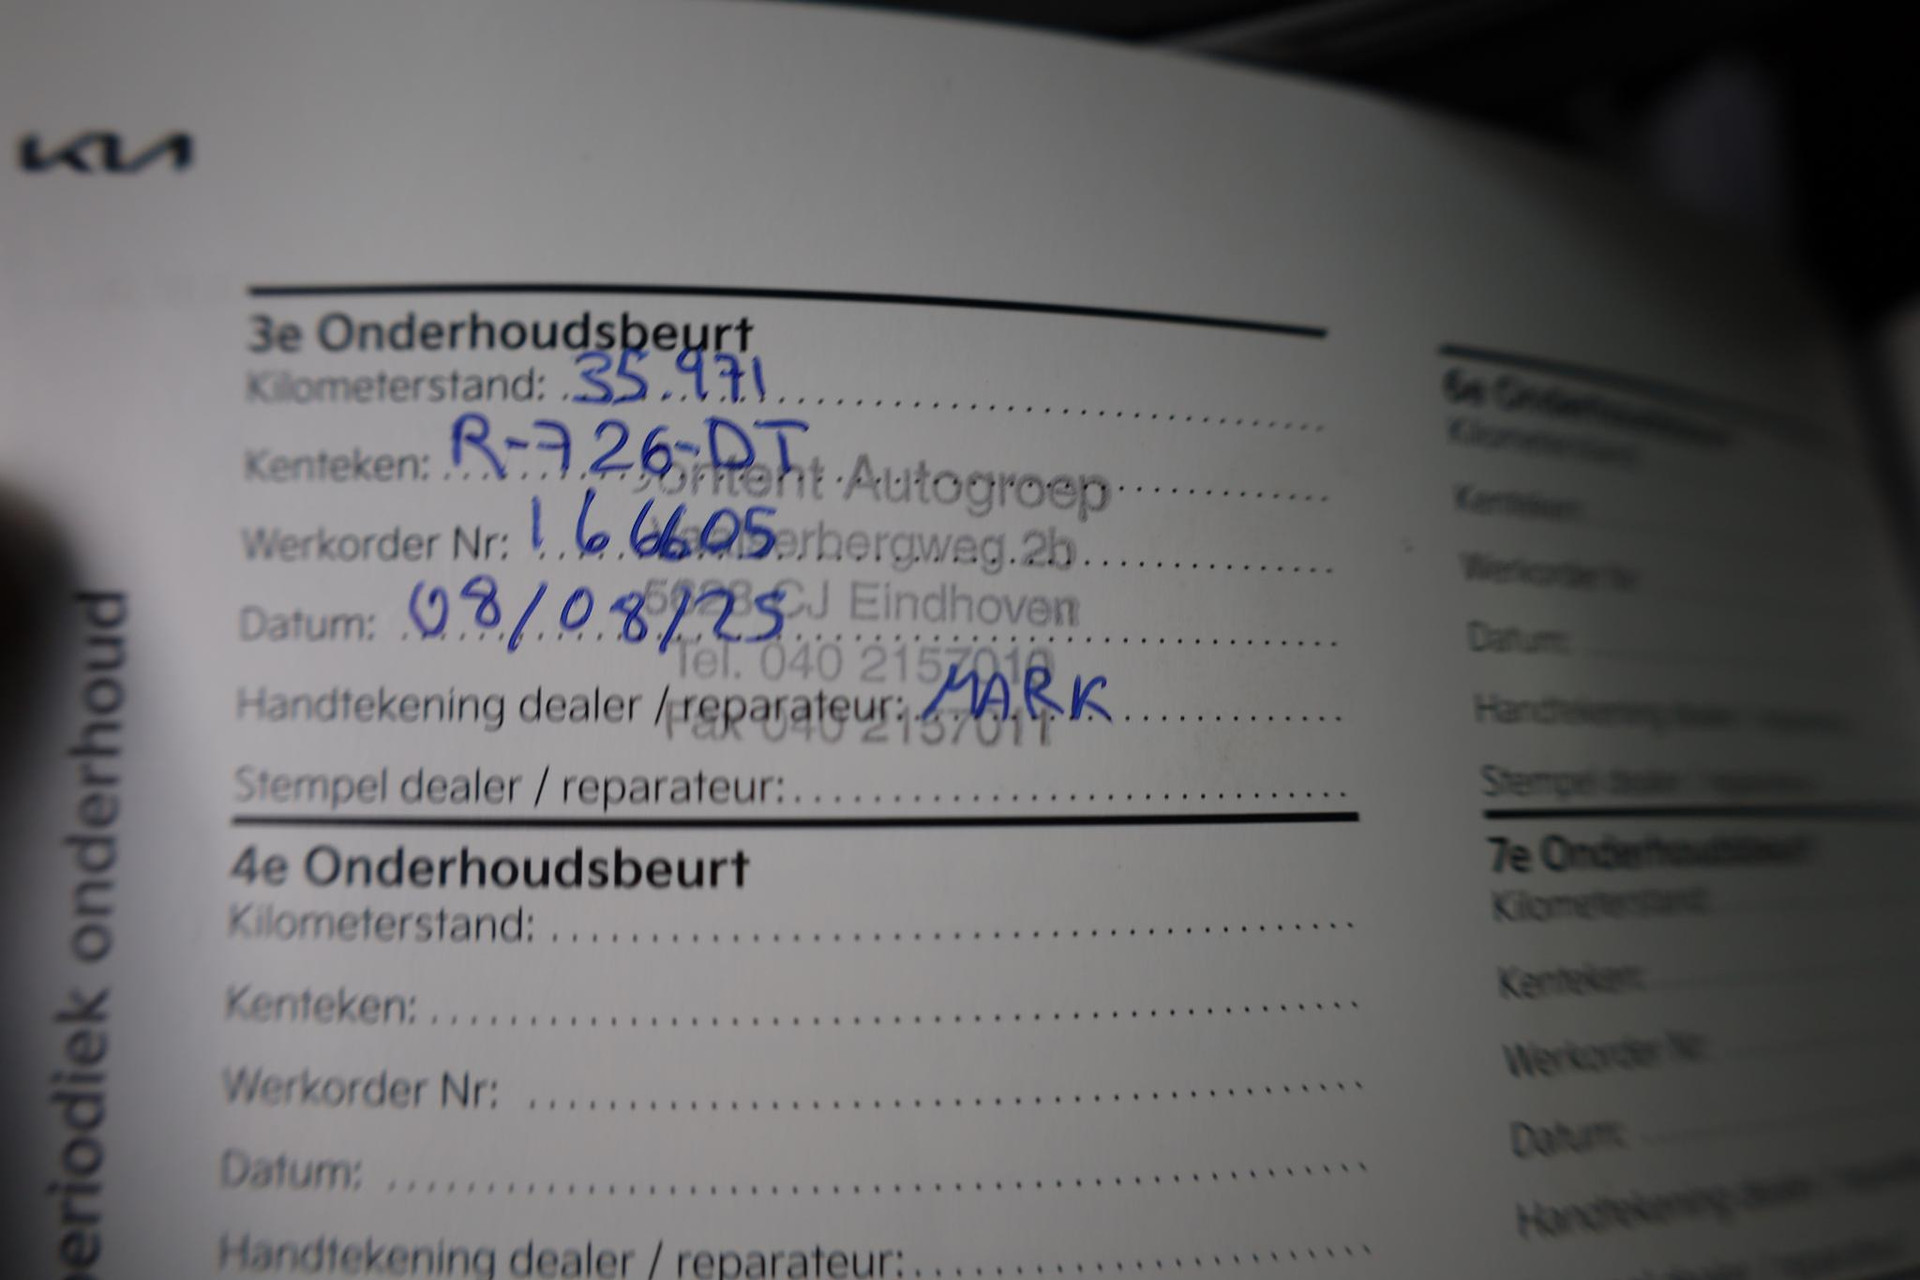 KIA
periodiek onderhoud
3e Onderhoudsbeurt
Kilometerstand: 35.971
Kenteken: R-726-DT
Werkorder Nr: 166605
Datum: 08/08/25
Handtekening dealer / reparateur: MARK
Stempel dealer / reparateur:
Autogroep
2b
CJ Eindhoven
Tel. 040 2157010
Fax 040 2157011
4e Onderhoudsbeurt
Kilometerstand:
Kenteken:
Werkorder Nr:
Datum:
Handtekening dealer / reparateur:
6e Onderhoudsbeurt
Kilometerstand:
Kenteken:
Werkorder Nr:
Datum:
Handtekening dealer / reparateur:
Stempel dealer / reparateur:
7e Onderhoudsbeurt
Kilometerstand:
Kenteken:
Werkorder Nr:
Datum:
Handtekening dealer / reparateur: